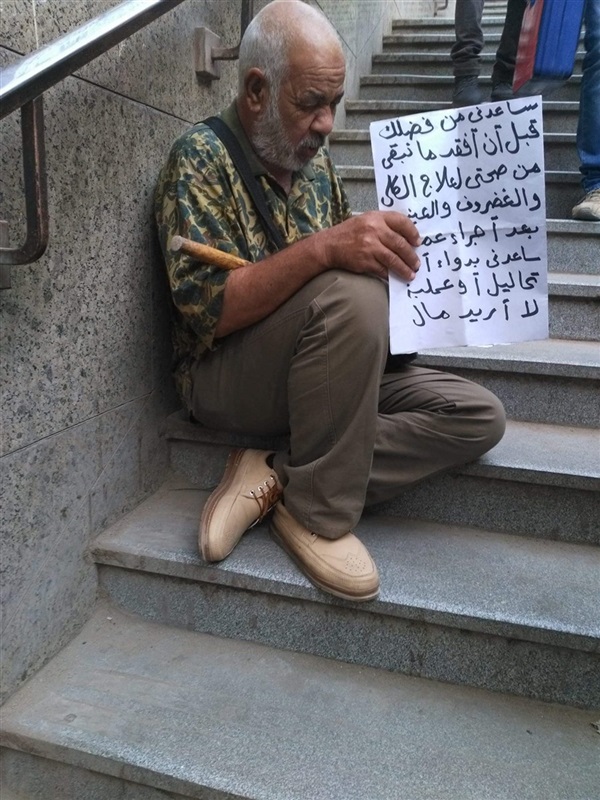 ساعدنى من فضلك
قبل أن أفقد ما تبقى
من صحتى لعلاج الكلى
والغضروف والعين
بعد أجراء
ساعدنى بدواء أ
تحاليل أو عملية
لا أريد مال